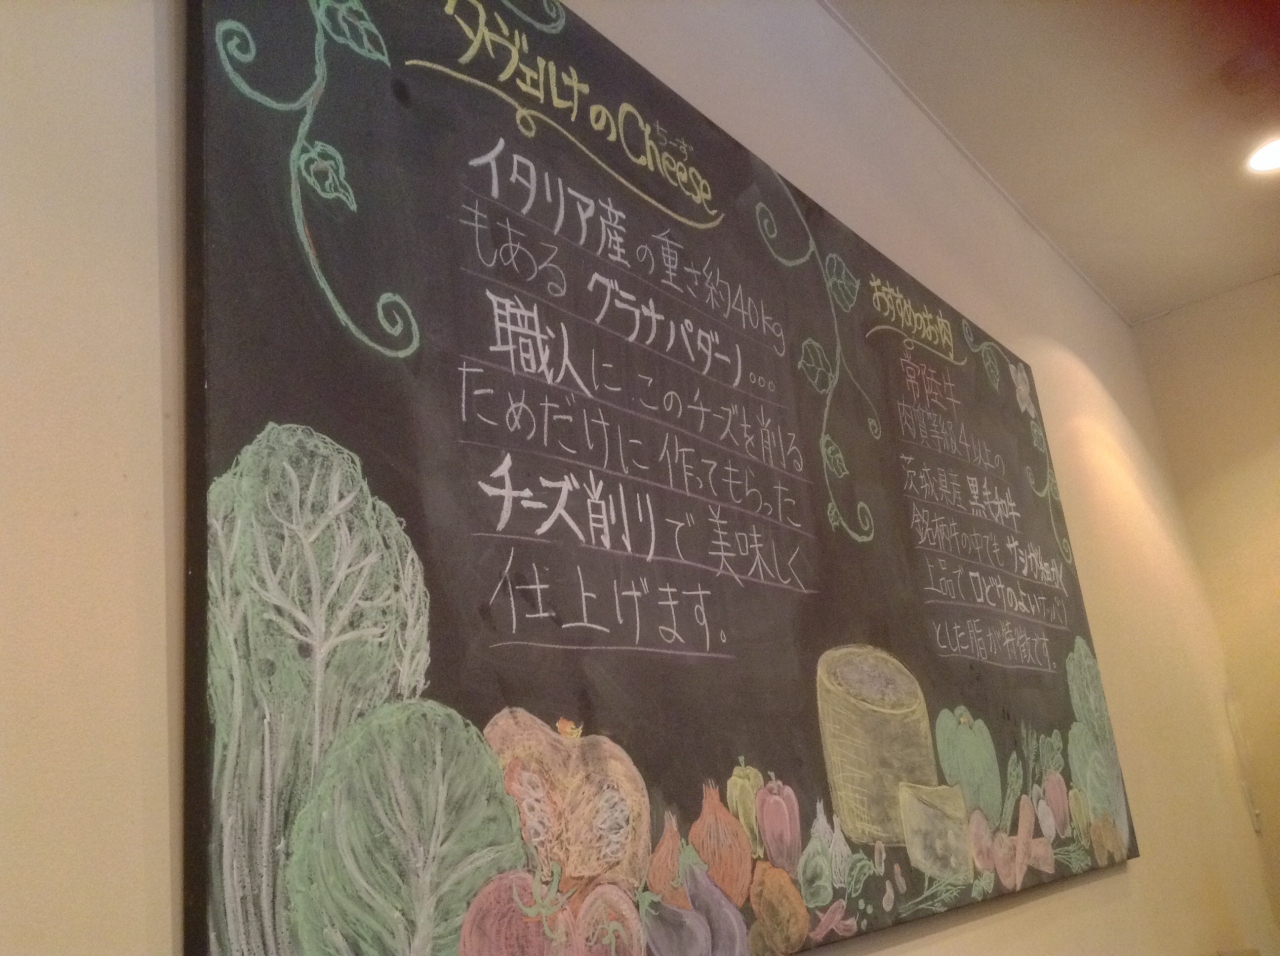 タヴェルナのCheese
ちーず
イタリア産の重さ約40kg
もあるグラナパダーノ...
職人にこのチーズを削る
ためだけに作ってもらった
チーズ削りで美味しく
仕上げます。
おすすめのお肉
常陸牛
肉質等級4以上の
茨城県産黒毛和牛
銘柄牛の中でもサシが細かく
上品で口どけのよいサッパリ
とした脂が特徴です。